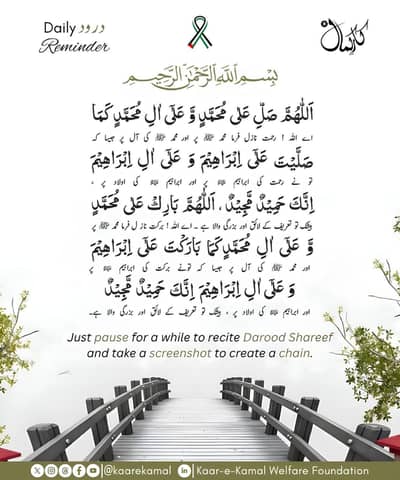 Daily درود
Reminder
کارِکمال
بِسْمِ اللّٰهِ الرَّحْمٰنِ الرَّحِيْمِ
اَللّٰهُمَّ صَلِّ عَلٰی مُحَمَّدٍ وَّ عَلٰٓی اٰلِ مُحَمَّدٍ کَمَا
اے اللہ ! رحمت نازل فرما محمد ﷺ پر اور محمد ﷺ کی آل پر جیسا کہ
صَلَّیْتَ عَلٰٓی اِبْرَاهِیْمَ وَ عَلٰٓی اٰلِ اِبْرَاهِیْمَ
تو نے رحمت کی ابراہیم پر اور ابراہیم کی اولاد پر ،
اِنَّکَ حَمِیْدٌ مَّجِیْدٌ ، اَللّٰهُمَّ بَارِکْ عَلٰی مُحَمَّدٍ
بیشک تو تعریف کے لائق اور بزرگی والا ہے ۔ اے اللہ ! برکت نازل فرما محمد ﷺ پر
وَّ عَلٰٓی اٰلِ مُحَمَّدٍ کَمَا بَارَکْتَ عَلٰٓی اِبْرَاهِیْمَ
اور محمد ﷺ کی آل پر جیسا کہ تونے برکت کی ابراہیم پر
وَ عَلٰٓی اٰلِ اِبْرَاهِیْمَ اِنَّکَ حَمِیْدٌ مَّجِیْدٌ
اور ابراہیم کی اولاد پر ، بیشک تو تعریف کے لائق اور بزرگی والا ہے۔
Just pause for a while to recite Darood Shareef
and take a screenshot to create a chain.
@kaarekamal | Kaar-e-Kamal Welfare Foundation